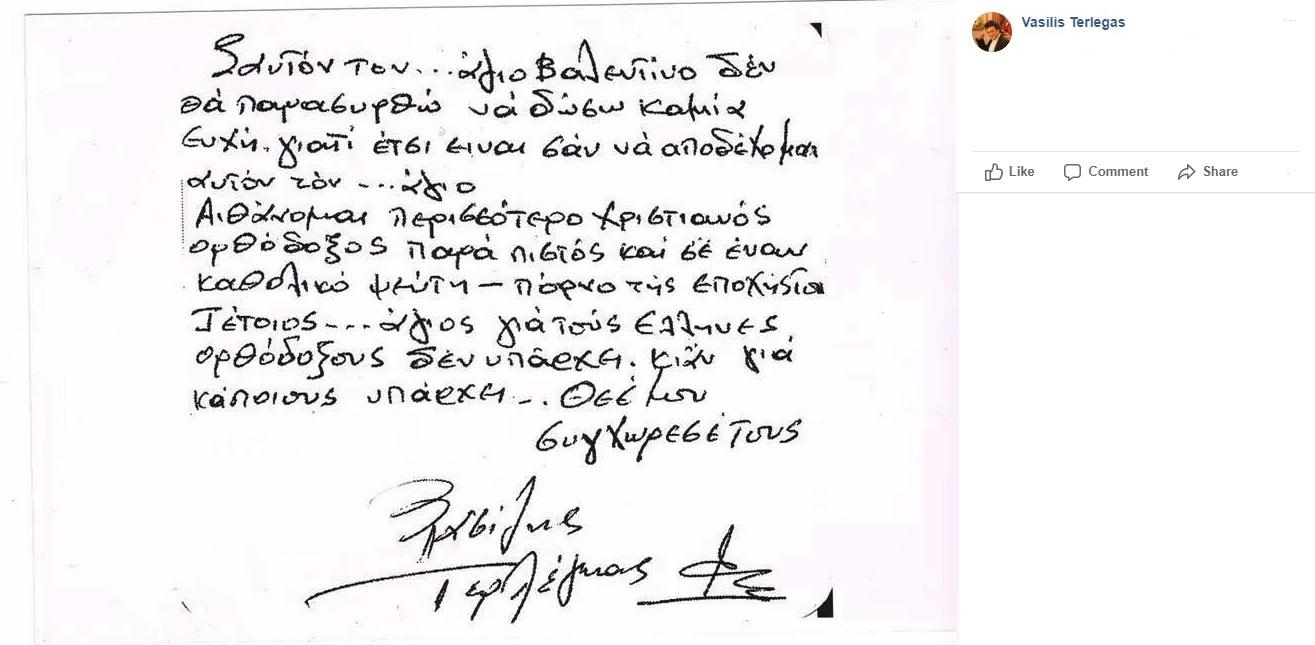 Σ'αυτόν τον...άγιο Βαλεντίνο δέν
θά παρασυρθώ νά δώσω καμία
ευχή. γιατί έτσι ειναι σάν νά αποδέχομαι
αυτόν τόν ...άγιο
Αιθάνομαι περισσότερο χριστιανός
ορθόδοξος παρά πιστός καί σέ έναν
καθολικό ψεύτη – πόρνο τής εποχής
Τέτοιος...άγιος γιά τούς Ελληνες
ορθόδοξους δέν υπάρχει. κι άν γιά
κάποιους υπάρχει... Θεέ μου
συγχωρεσέ τους
Βασίλης
Τερλέγκας
Vasilis Terlegas
Like Comment Share